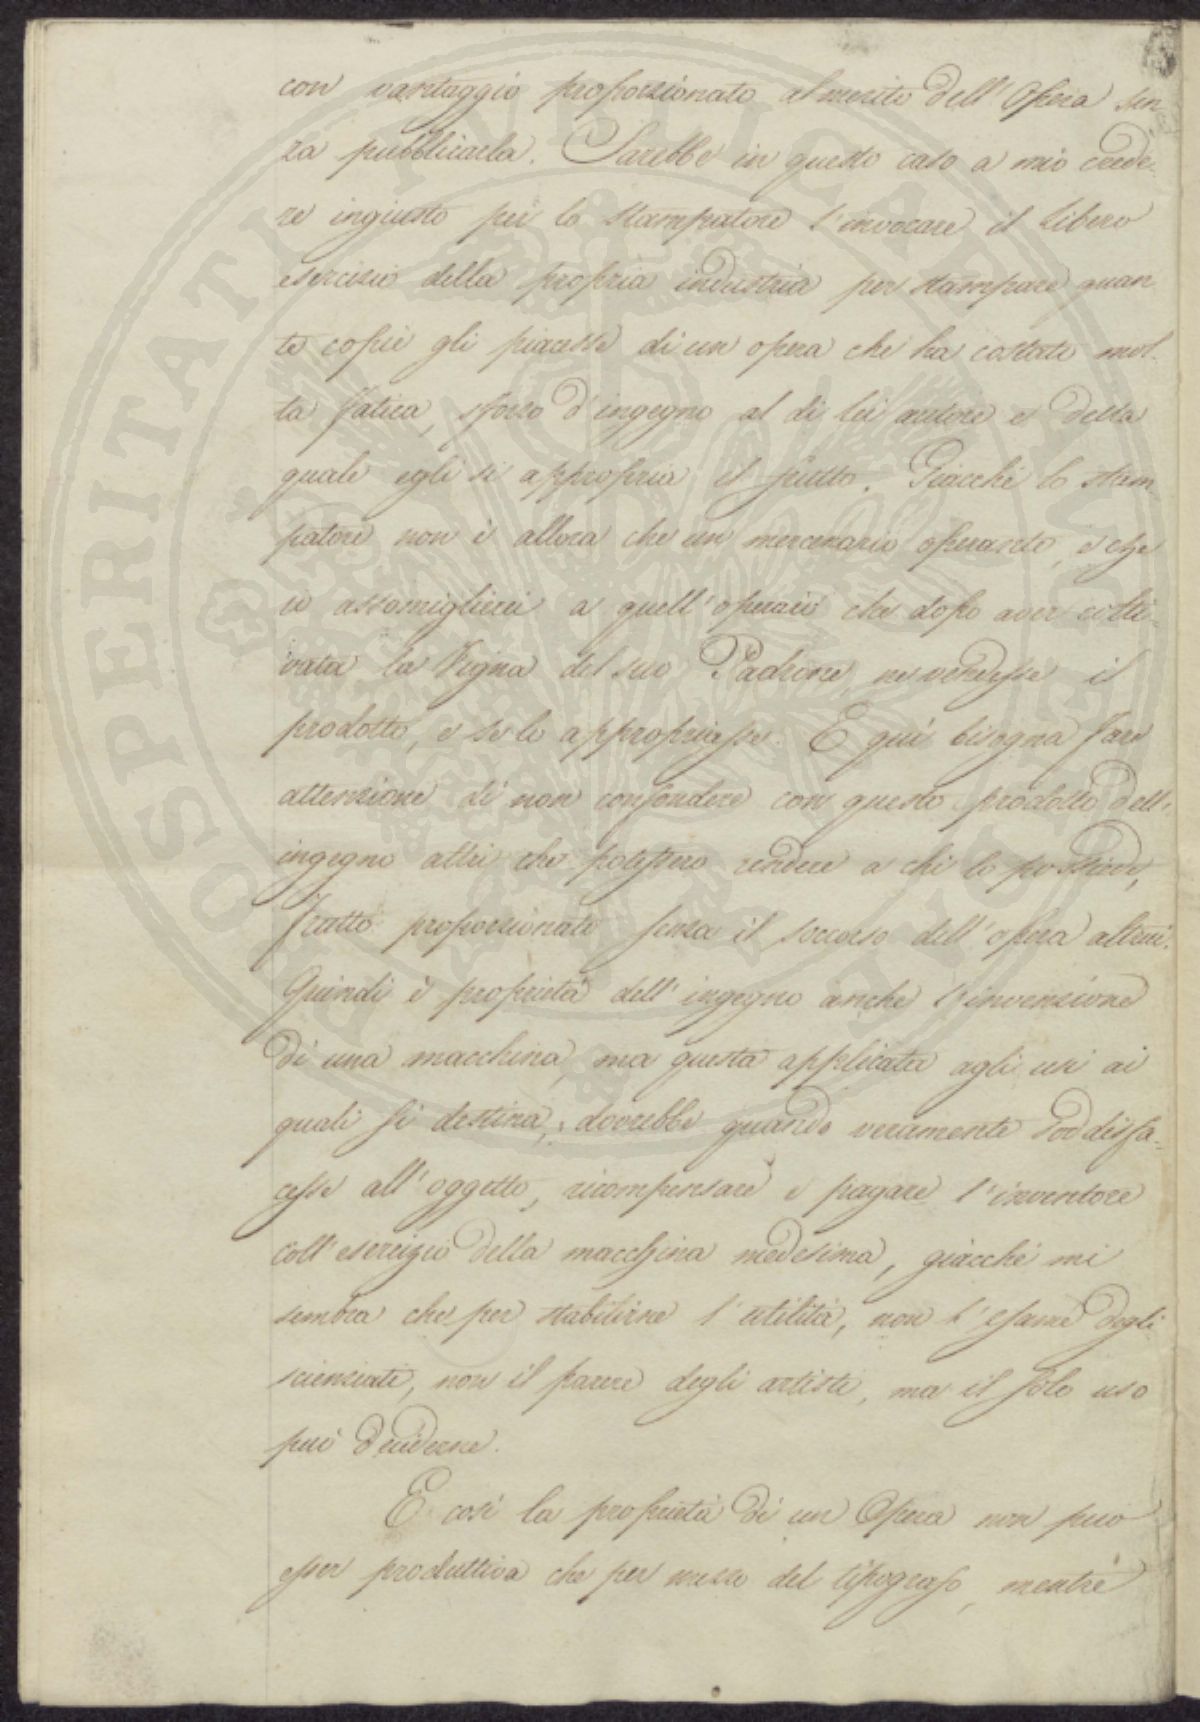 con vantaggio proporzionato al merito dell' Opera sen
za pubblicarla. Sarebbe in questo caso a mio crede-
re ingiusto per lo stampatore l'invocare il libero
esercizio della propria industria per stampare quan
te copie gli piacesse di un opera che ha costato mol-
ta fatica, sforzo d'ingegno al di lei autore e della
quale egli si appropria il frutto. Giacchè lo stam
patore non è allora che un mercenario operante, e che
io assomiglierei a quell'operaio che dopo aver colti-
vata la Vigna del suo Padrone, ne vendesse il
prodotto, e se lo appropriasse. E quì bisogna fare
attenzione di non confondere con questo prodotto dell'
ingegno altri che potessero rendere a chi lo possiede,
frutto proporzionato senza il soccorso dell'opera altrui.
Quindi è proprietà dell'ingegno anche l'invenzione
di una macchina, ma questa applicata agli usi ai
quali si destina, dovrebbe quando veramente soddisfa-
cesse all'oggetto, ricompensare e pagare l'inventore
coll'esercizio della macchina medesima, giacchè mi
sembra che per stabilirne l'utilità, non l'esame degli
scienziati, non il parere degli artisti, ma il solo uso
può deciderne.
E così la proprietà di un Opera non può
esser produttiva che per mezzo del tipografo, mentre
PROSPERITATI PVBLICAE